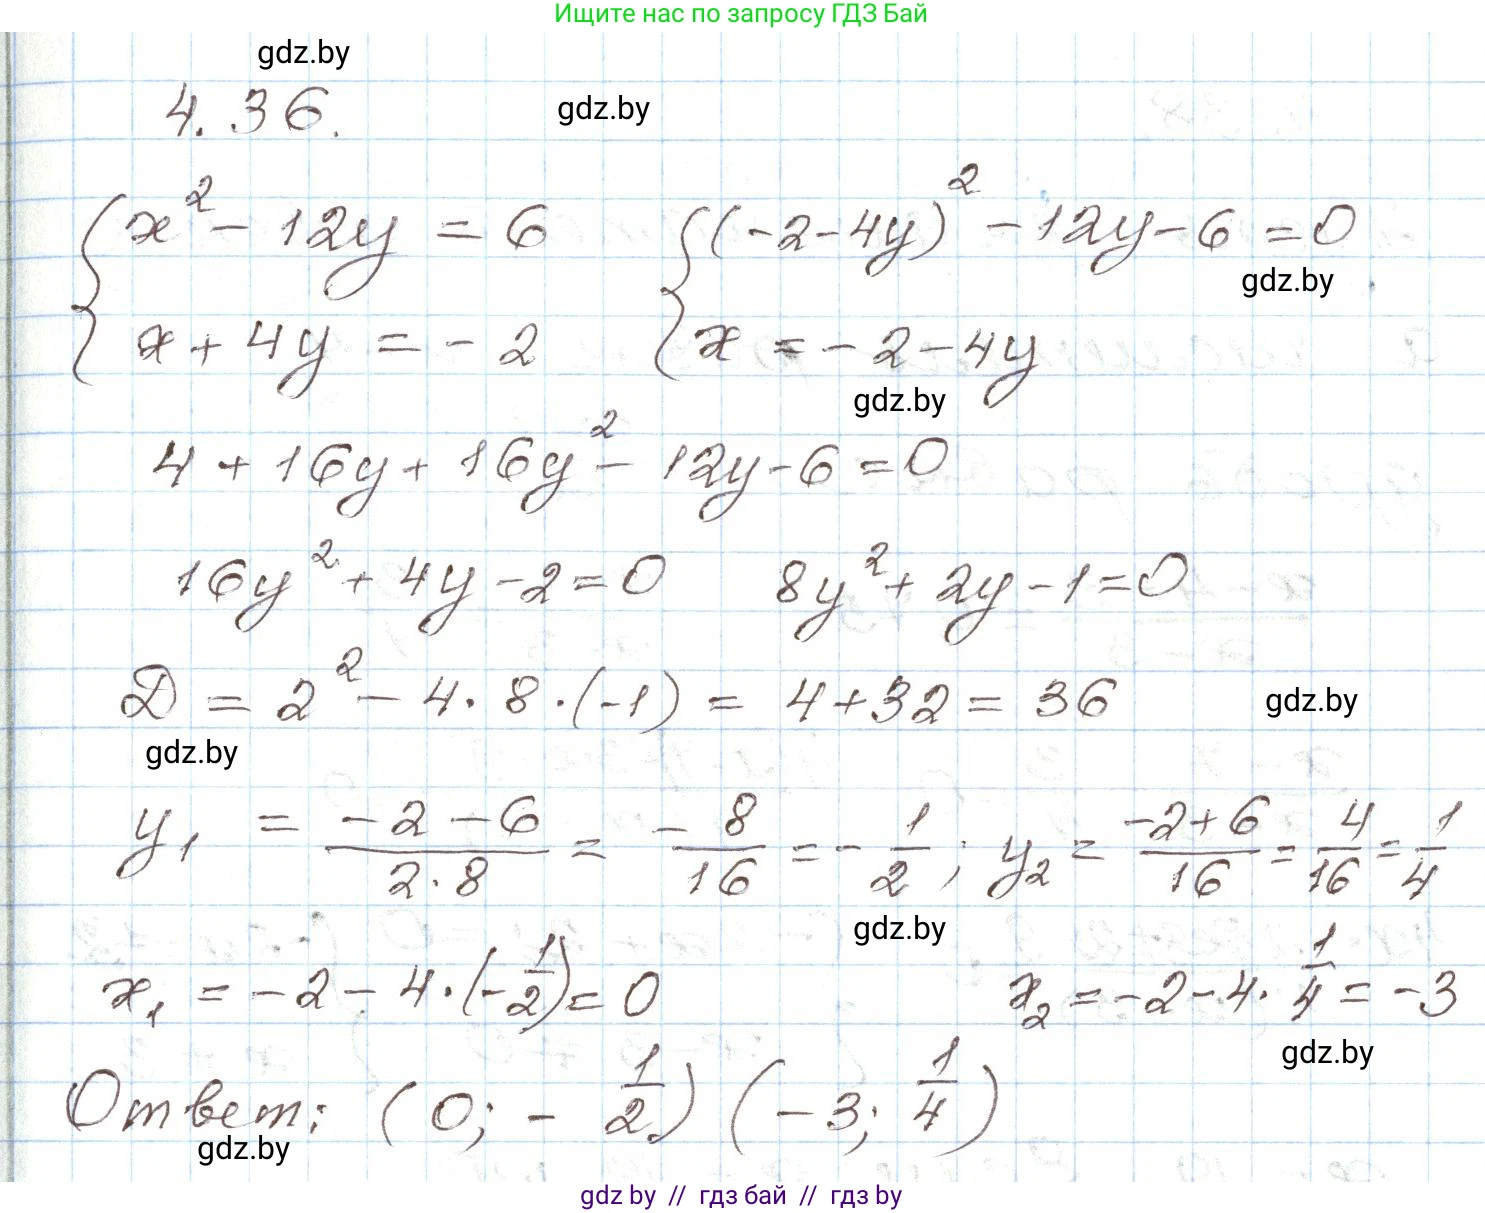 Ищите нас по запросу ГДЗ Бай
gdz.by
4.36.
gdz.by
{ x² - 12y = 6 { (-2-4y)² - 12y - 6 = 0
gdz.by
x + 4y = - 2 x = - 2 - 4y
gdz.by
4 + 16y + 16y² - 12y - 6 = 0
16y² + 4y - 2 = 0 8y² + 2y - 1 = 0
D = 2² - 4 · 8 · (-1) = 4 + 32 = 36
gdz.by
gdz.by
y₁ = (-2-6)/(2·8) = -8/16 = -1/2; y₂ = (-2+6)/16 = 4/16 = 1/4
gdz.by
x₁ = -2 - 4 · (-1/2) = 0 x₂ = -2 - 4 · 1/4 = -3
gdz.by
Ответ: (0; -1/2) (-3; 1/4)
gdz.by
gdz by // гдз бай // гдз by